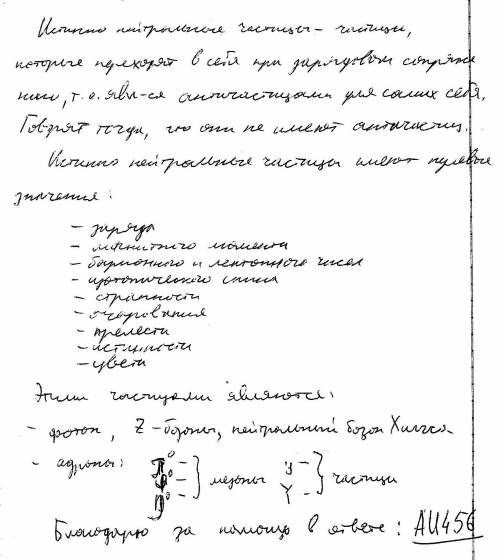 Истинно нейтральные частицы - частицы,
которые переходят в себя при зарядовом сопряже
нии, т.е. явл-ся античастицами для самих себя.
Говорят тогда, что они не имеют античастиц.
Истинно нейтральные частицы имеют нулевые
значения:
- заряда
- магнитного момента
- барионного и лептонного чисел
- изотопического спина
- странности
- очарования
- прелести
- истинности
- цвета
Этими частицами являются:
- фотон, Z-бозоны, нейтральный бозон Хиггса
- адроны: π⁰ - } мезоны
} частицы
Благодарю за помощь в ответе: AU456